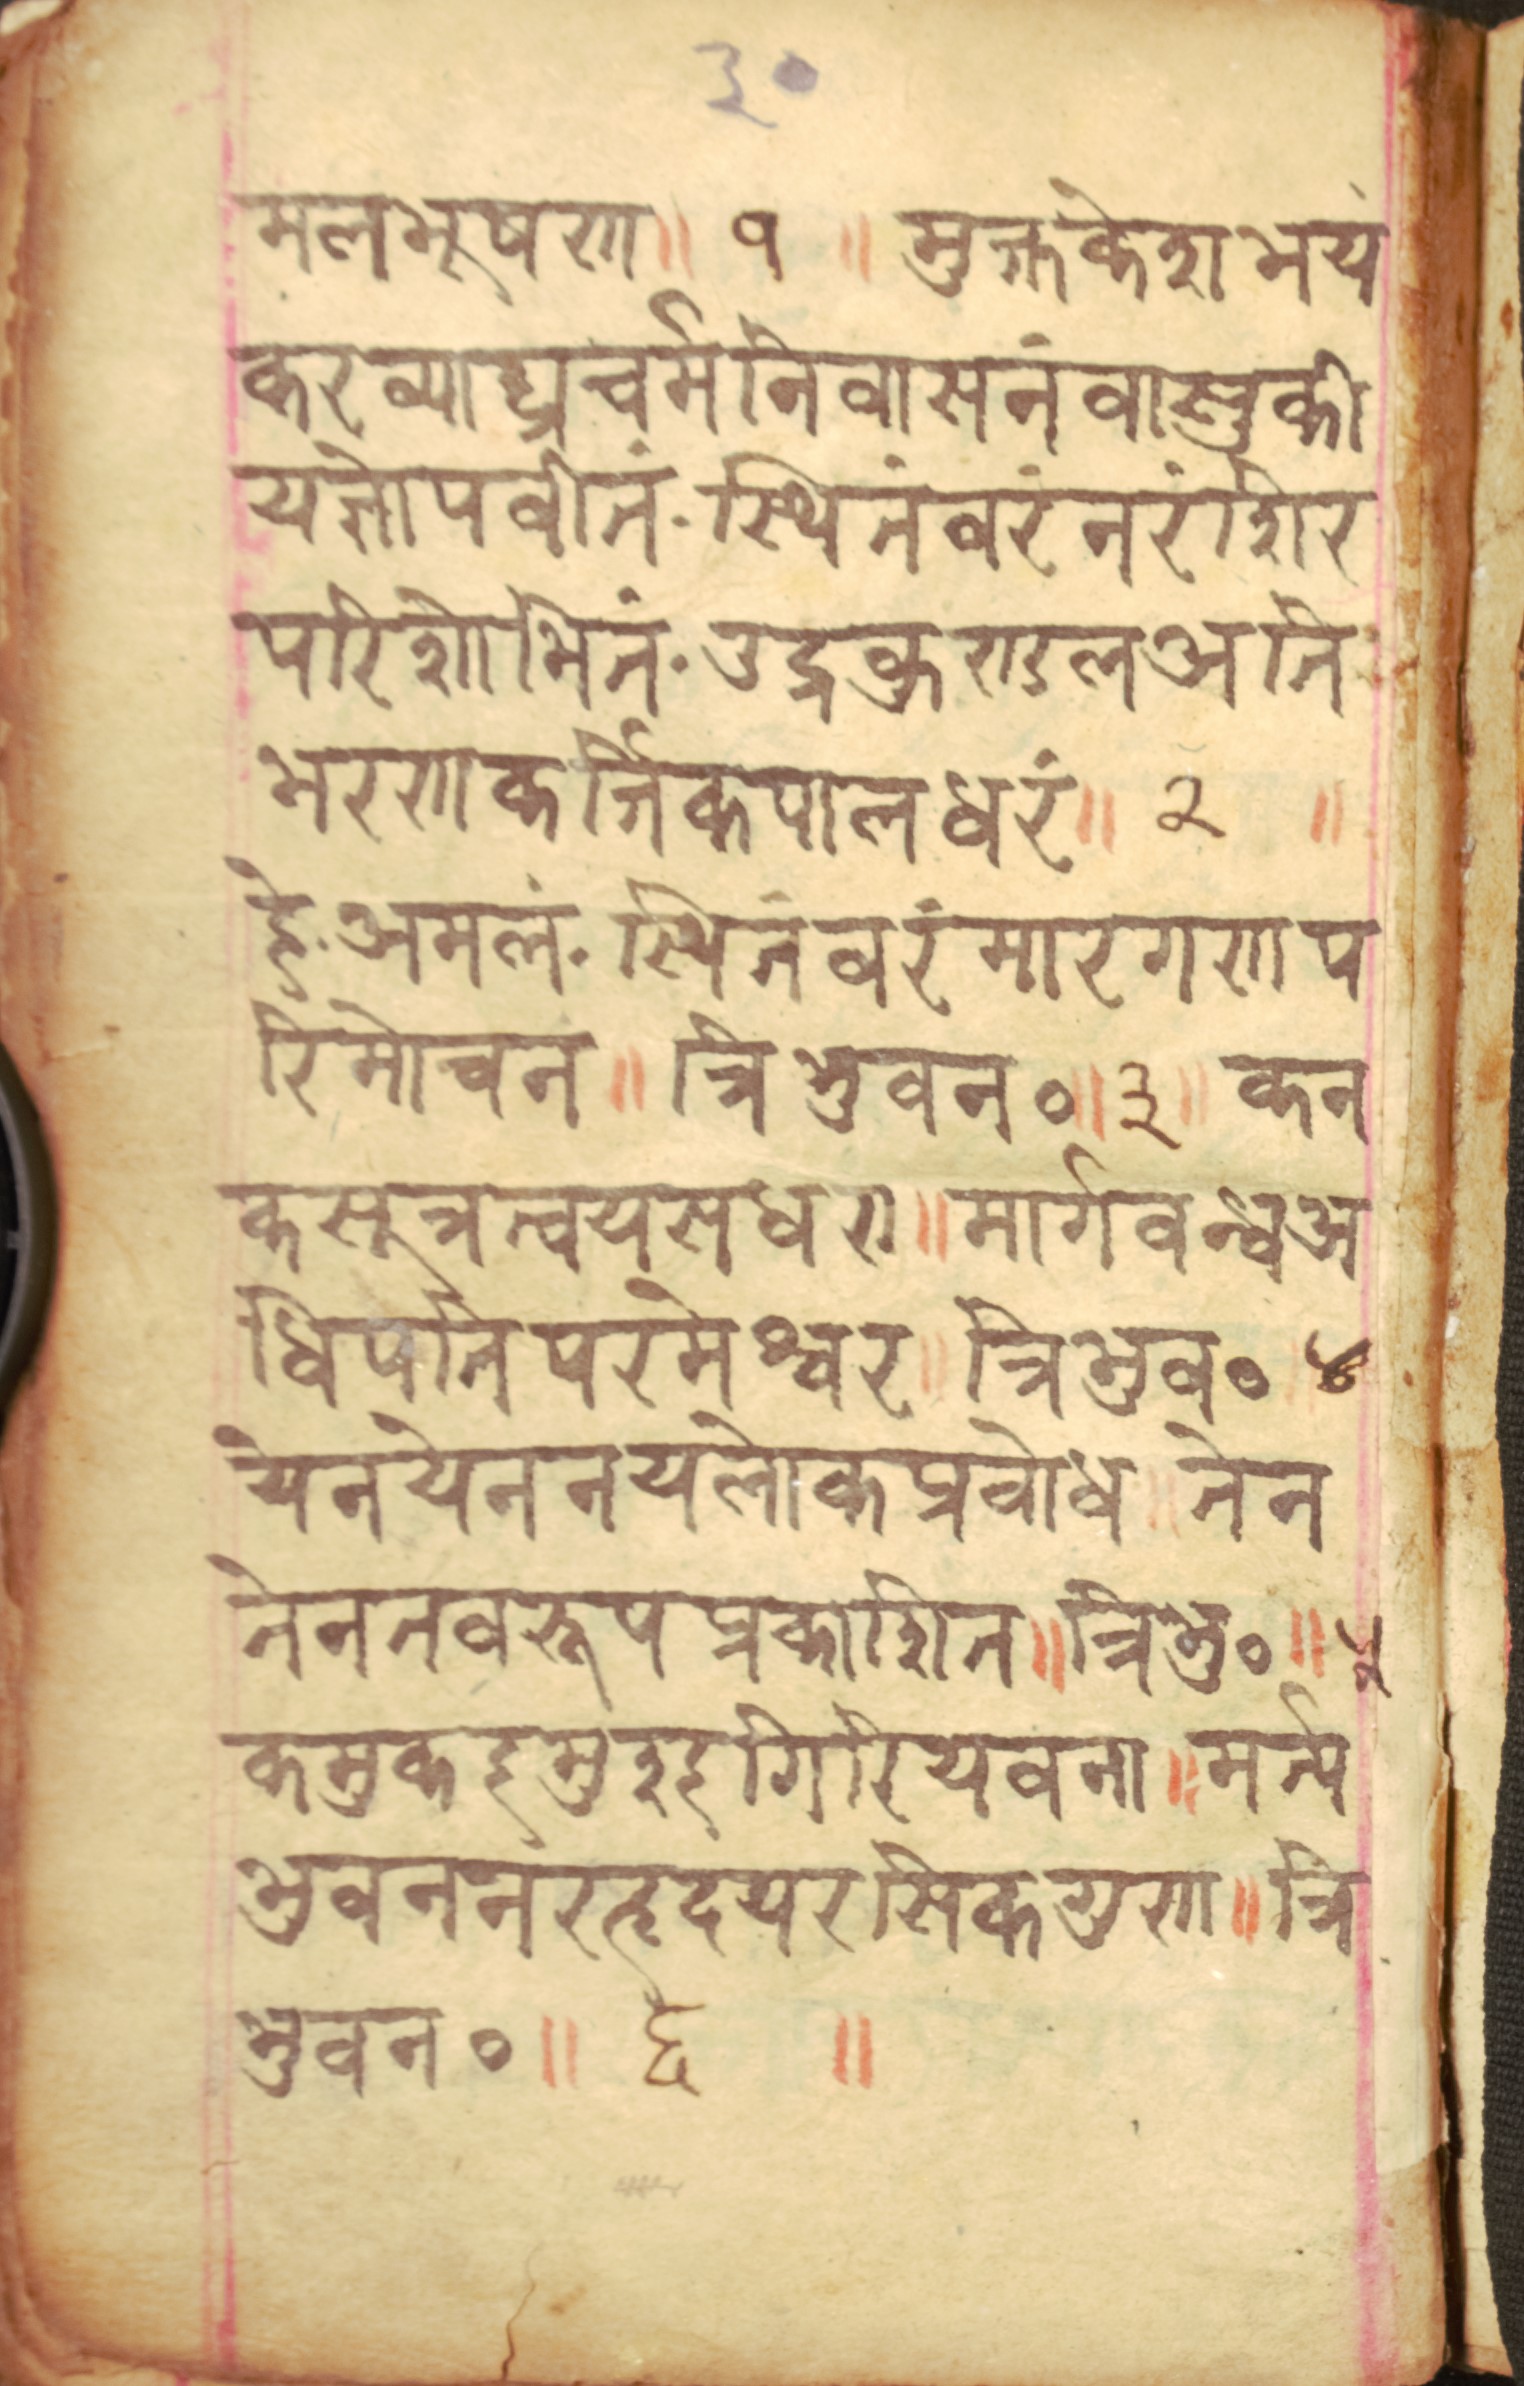 ३०
मलभूषण॥ १ ॥ मुक्तकेशभयं
करव्याघ्रचर्मनिवासनंवासुकी
यज्ञोपवीतं. स्थितंवरंनरंशिर
परिशोभितं. उद्रकुण्डलअति
भरणकर्तिकपालधरं॥ २ ॥
हे. अमलं. स्थितंवरंमारगणप
रिमोचन॥ त्रिभुवन०॥ ३॥ कन
कसूत्रत्वयसधरा॥ मार्गवन्धअ
धिपतिपरमेश्वर॥ त्रिभुव० ४
येनयेननयलोकप्रवोध॥ तेन
तेनतवरूपप्रकाशित॥ त्रिभु०॥ ५
कमुकइमुरइगिरियवना॥ मर्त्य
भुवननरहृदयरसिकगुण॥ त्रि
भुवन०॥ ६ ॥